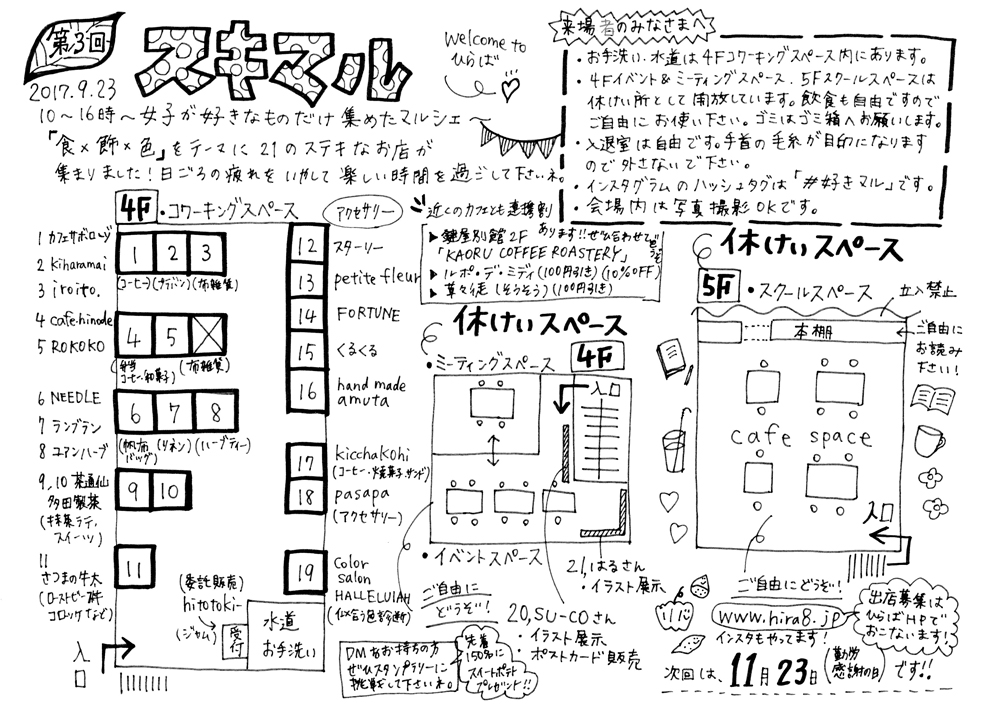 第3回
スキマル
2017.9.23
Welcome to
ひらば
10～16時～女子が好きなものだけ集めたマルシェ～
「食×飾×色」をテーマに21のステキなお店が
集まりました！日ごろの疲れをいやして楽しい時間を過ごして下さいね。
来場者のみなさまへ
・お手洗い、水道は4Fコワーキングスペース内にあります。
・4Fイベント&ミーティングスペース、5Fスクールスペースは
休けい所として開放しています。飲食も自由ですので
ご自由にお使い下さい。ゴミはゴミ箱へお願いします。
・入退室は自由です。手首の毛糸が目印になります
ので外さないで下さい。
・インスタグラムのハッシュタグは「#好きマル」です。
・会場内は写真撮影OKです。
4F・コワーキングスペース
1 カフェサボローゾ
2 Kiharamai
3 iroito.
1 2 3
(コーヒー)(布雑貨)
4 cafe・hinode
5 ROKOKO
4 5
(弁当
コーヒー、和菓子)
(布雑貨)
6 NEEDLE
7 ラングラン
8 ユアンハーブ
6 7 8
(帆布
バッグ)
(リネン)
(ハーブティー)
9、10 茶通仙
多田製茶
(抹茶ラテ、
スイーツ)
9 10
11
さつまの牛太
(ローストビーフ丼
コロッケなど)
11
(委託販売)
hitotoki-
(ジャム)
受付
水道
お手洗い
入口
アクセサリー
12 スターリー
13 petite fleur
14 FORTUNE
15 くるくる
16 hand made
amuta
17 kicchakohi
(コーヒー・焼菓子、サンド)
18 pasapa
(アクセサリー)
19 Color
salon
HALLELUIAH
(似合う色診断)
近くのカフェとも連携割
あります!!ぜひ合わせてどうぞ
▶鍵屋別館2F
「KAORU COFFEE ROASTERY」
▶ルポ・デ・ミディ(100円引き)(10%OFF)
▶草々徒(そうそう)(100円引き)
休けいスペース
4F
・ミーティングスペース
入口
・イベントスペース
ご自由に
どうぞ！
20,SU-COさん
・イラスト展示
・ポストカード販売
21,はるさん
・イラスト展示
DMをお持ちの方
ぜひスタンプラリーに
挑戦をして下さいね。
先着
150名に
スイートポテト
プレゼント!!
休けいスペース
5F
・スクールスペース
立入禁止
本棚
ご自由に
お読み
下さい！
cafe space
入口
ご自由にどうぞ！
www.hira8.jp
インスタもやってます！
出店募集は
ひらばHPで
おこないます！
次回は、11月23日(勤労感謝の日)です!!